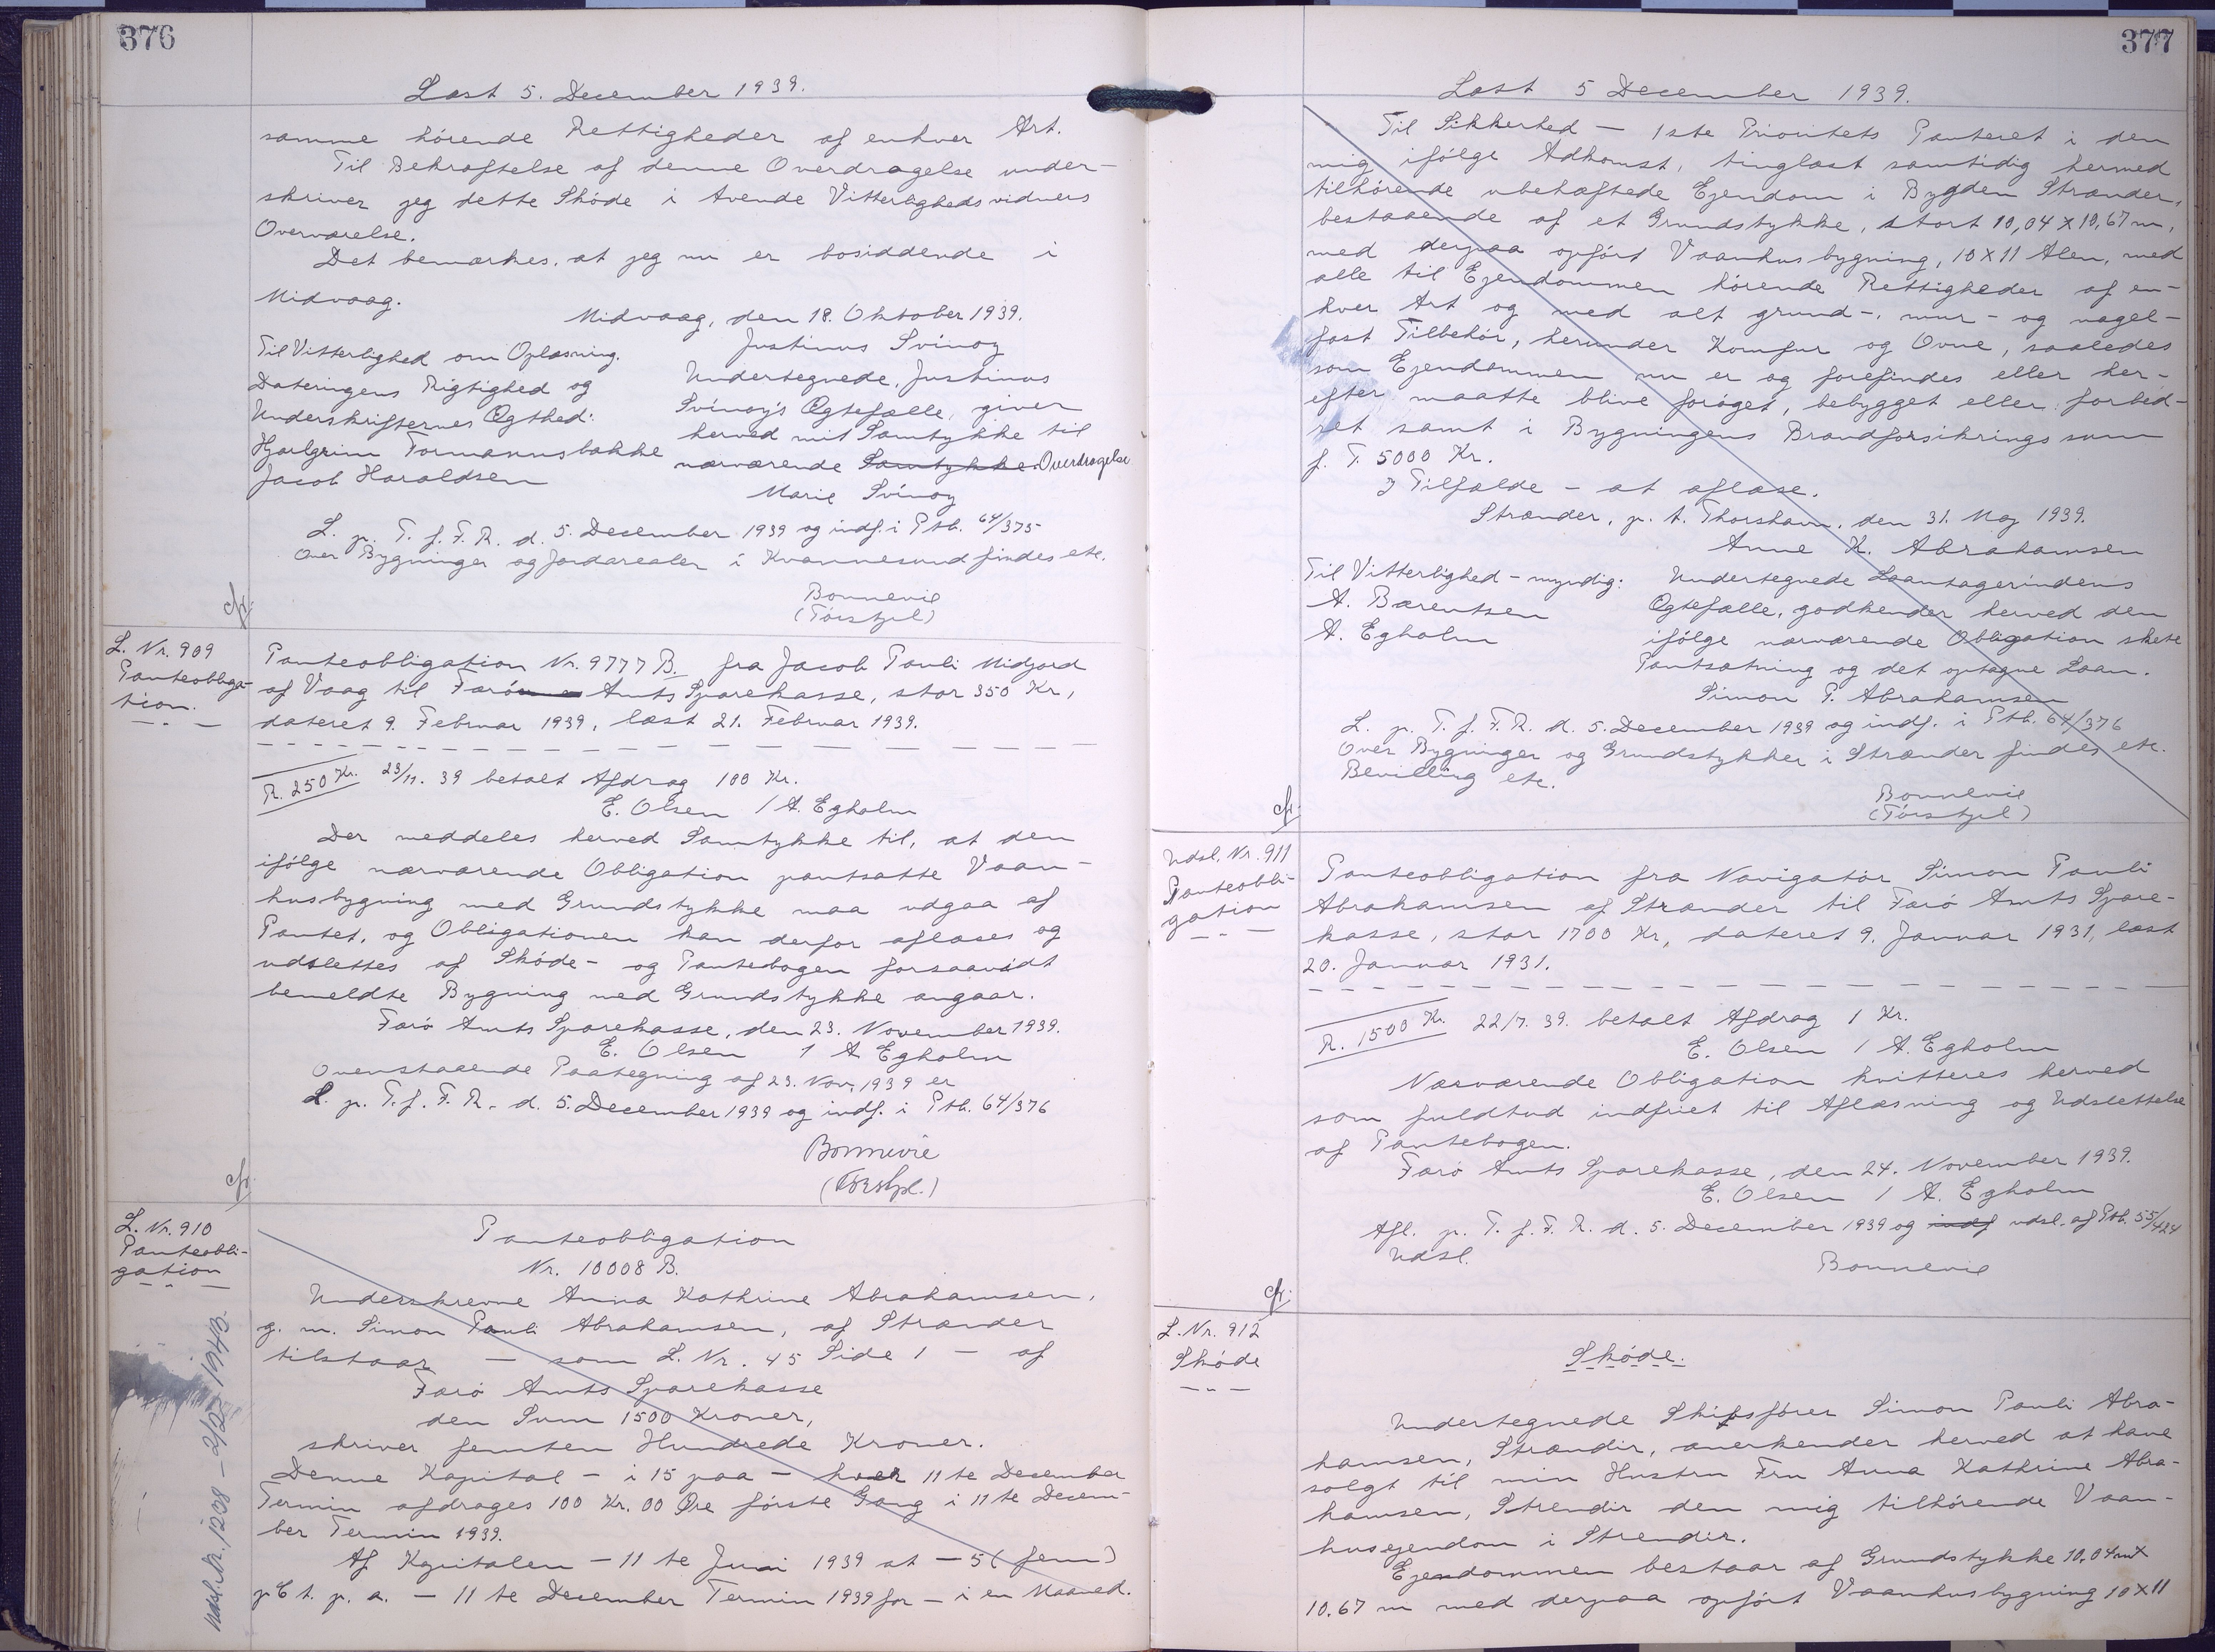 376
Læst 5. December 1939.
samme hørende Rettigheder af enhver Art.
Til Bekræftelse af denne Overdragelse under-
skriver jeg dette Skøde i tvende Vitterlighedsvidners
Overværelse.
Det bemærkes, at jeg nu er bosiddende i
Midvaag.
Midvaag, den 18. Oktober 1939.
Justinus Svínoy
Til Vitterlighed om Oplæsning,
Dateringens Rigtighed og
Underskrifternes Ægthed:
Hjørlgrim Tormannsbakke
Jacob Haraldsen
Undertegnede, Justinus
Svínoy's Ægtefælle, giver
herved mit Samtykke til
nærværende Samtykke Overdragelse
Marie Svínoy
L. p. T. f. F. R. d. 5. December 1939 og indf. i Ptb. 64/375
Over Bygninger og Jordarealer i Kvannesund findes etc.
Bonnevie
(Tórstpl)
cfr.
L. Nr. 909
Panteobliga-
tion.
Panteobligation Nr. 9777 B. fra Jacob Pauli Midjord
af Vaag til Færø Amts Sparekasse, stor 350 Kr,
dateret 9. Februar 1939, læst 21. Februar 1939.
R. 250 Kr. 23/11. 39 betalt Afdrag 100 Kr.
E. Olsen / A. Egholm
Der meddeles herved Samtykke til, at den
ifølge nærværende Obligation pantsatte Vaan-
husbygning med Grundstykke maa udgaa af
Pantet, og Obligationen kan derfor aflæses og
udslettes af Skøde- og Pantebogen forsaavidt
bemeldte Bygning med Grundstykke angaar.
Færø Amts Sparekasse, den 23. November 1939.
E. Olsen / A Egholm
Ovenstaaende Paategning af 23. Nov. 1939 er
L. p. T. f. F. R. d. 5. December 1939 og indf. i Ptb. 64/376
Bonnevie
(Tórstpl.)
cfr.
L. Nr. 910
Panteobli-
gation
Udsl. Nr. 1208 - 2/2 - 1943.
Panteobligation
Nr. 10008 B.
Underskrevne Anna Kathrine Abrahamsen,
g. m. Simon Pauli Abrahamsen, af Strænder
tilstaar — som L. Nr. 45 Side 1 — af
Færø Amts Sparekasse
den Sum 1500 Kroner,
skriver femten Hundrede Kroner.
Denne Kapital — i 15 paa — hver 11te December
Termin afdrages 100 Kr. 00 Øre første Gang i 11te Decem-
ber Termin 1939.
Af Kapitalen — 11te Juni 1939 at — 5 (fem)
pCt. p. a. — 11te December Termin 1939 for — i en Maaned.
377
Læst 5 December 1939.
Til Sikkerhed — 1ste Prioritets Panteret i den
mig ifølge Adkomst, tinglæst samtidig hermed
tilhørende ubehæftede Ejendom i Bygden Strænder,
bestaaende af et Grundstykke, stort 10,04 x 10,67 m,
med derpaa opført Vaanhusbygning, 10 x 11 Alen, med
alle til Ejendommen hørende Rettigheder af en-
hver Art og med alt grund-, mur- og nagel-
fast Tilbehør, herunder Komfur og Ovne, saaledes
som Ejendommen nu er og forefindes eller her-
efter maatte blive forøget, bebygget eller forbed-
ret samt i Bygningens Brandforsikringssum
f. T. 5000 Kr.
I Tilfælde — at aflæse.
Strænder, p. t. Thorshavn, den 31. Maj 1939.
Anne K. Abrahamsen
Til Vitterlighed — myndig:
A. Bærentsen
A. Egholm
Undertegnede Laantagerindens
Ægtefælle, godkender herved den
ifølge nærværende Obligation skete
Pantsætning og det optagne Laan.
Simon P. Abrahamsen
L. p. T. f. F. R. d. 5. December 1939 og indf. i Ptb. 64/376
Over Bygninger og Grundstykker i Strænder findes etc.
Bevilling etc.
Bonnevie
(Tórstpl)
cfr.
Udsl. Nr. 911
Panteobli-
gation
Panteobligation fra Navigatør Simon Pauli
Abrahamsen af Strænder til Færø Amts Spare-
kasse, stor 1700 Kr, dateret 9. Januar 1931, læst
20. Januar 1931.
R. 1500 Kr. 22/7. 39. betalt Afdrag 1 Kr.
E. Olsen / A. Egholm
Nærværende Obligation kvitteres herved
som fuldtud indfriet til Aflæsning og Udslettelse
af Pantebogen.
Færø Amts Sparekasse, den 24. November 1939.
E. Olsen / A. Egholm
Afl. p. T. f. F. R. d. 5. December 1939 og indf udsl. af Ptb. 55/424
Udsl.
Bonnevie
cfr.
L. Nr. 912
Skøde
Skøde.
Undertegnede Skibsfører Simon Pauli Abra-
hamsen, Strændir, anerkender herved at have
solgt til min Hustru Fru Anna Kathrine Abra-
hamsen, Strendir den mig tilhørende Vaan-
husejendom i Strendir.
Ejendommen bestaar af Grundstykke 10.04 m x
10.67 m med derpaa opført Vaanhusbygning 10 x 11